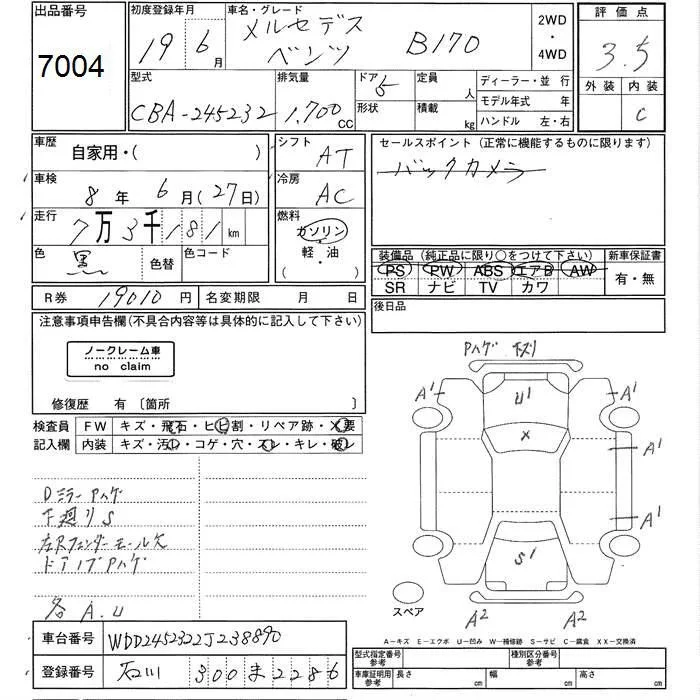 出品番号
7004
初度登録年月
19 6月
車名・グレード
メルセデス
ベンツ B170
2WD
・
4WD
評価点
3.5
外装 内装
C
型式
CBA-245232
排気量
1,700cc
ドア
5
形状
定員
人
積載
kg
ディーラー・並行
モデル年式 年
ハンドル 左・右
車歴
自家用・( )
シフト
AT
セールスポイント (正常に機能するものに限ります)
バックカメラ
車検
8年 6月(27日)
冷房
AC
走行
7万3千181km
燃料
ガソリン
軽・油
( )
色
黒
色替
色コード
装備品 (純正品に限り○をつけて下さい)
PS PW ABS エアB AW
SR ナビ TV カワ
新車保証書
有・無
R券 19010円
名変期限 月 日
後日品
注意事項申告欄(不具合内容等は具体的に記入して下さい)
ノークレーム車
no claim
修復歴 有 〔箇所 〕
検査員
記入欄
FW キズ・飛石・ヒビ割・リペア跡・×要
内装 キズ・汚レ・コゲ・穴・スレ・キレ・破レ
Dミラー Pハゲ
下廻りS
左Rフェンダーモール欠
ドアノブPハゲ
各A.U
Pハゲ 下ズリ
A1
U1
A1
X
A1
A1
S1
A2
A2
スペア
A−キズ E−エクボ U−凹み W−補修跡 S−サビ C−腐食 XX−交換済
車台番号 WDD2452322J238890
登録番号 石川 300 ま 2286
型式指定番号
参考
種別区分番号
参考
車庫証明用
参考
長さ cm
幅 cm
高さ cm